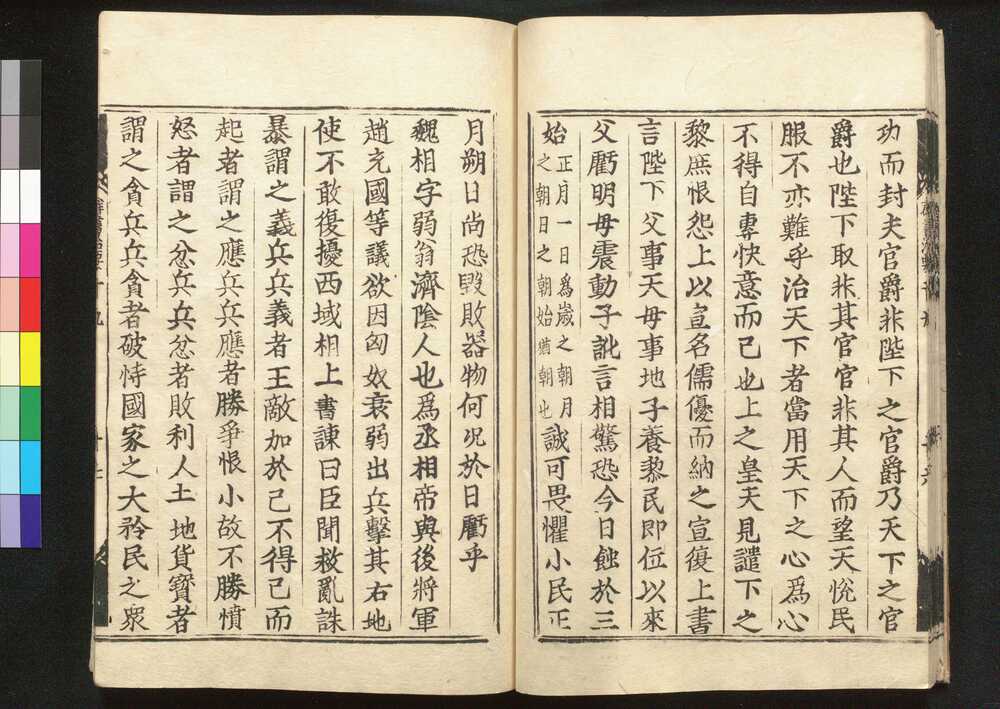 功而封夫官爵非陛下之官爵乃天下之官
爵也陛下取非其官官非其人而望天悅民
服不亦難乎治天下者當用天下之心爲心
不得自專快意而已也上之皇天見譴下之
黎庶恨怨上以宣名儒優而納之宣復上書
言陛下父事天母事地子養黎民即位以來
父虧明母震動子訛言相驚恐今日蝕於三
始
正月一日爲歲之朝月
之朝日之朝始猶朝也
誠可畏懼小民正
月朔日尚恐毀敗器物何況於日虧乎
魏相字弱翁濟陰人也爲丞相帝與後將軍
趙充國等議欲因匈奴衰弱出兵擊其右地
使不敢復擾西域相上書諫曰臣聞救亂誅
暴謂之義兵兵義者王敵加於己不得已而
起者謂之應兵兵應者勝爭恨小故不勝憤
怒者謂之忿兵兵忿者敗利人土地貨寶者
謂之貪兵兵貪者破恃國家之大矜民之衆